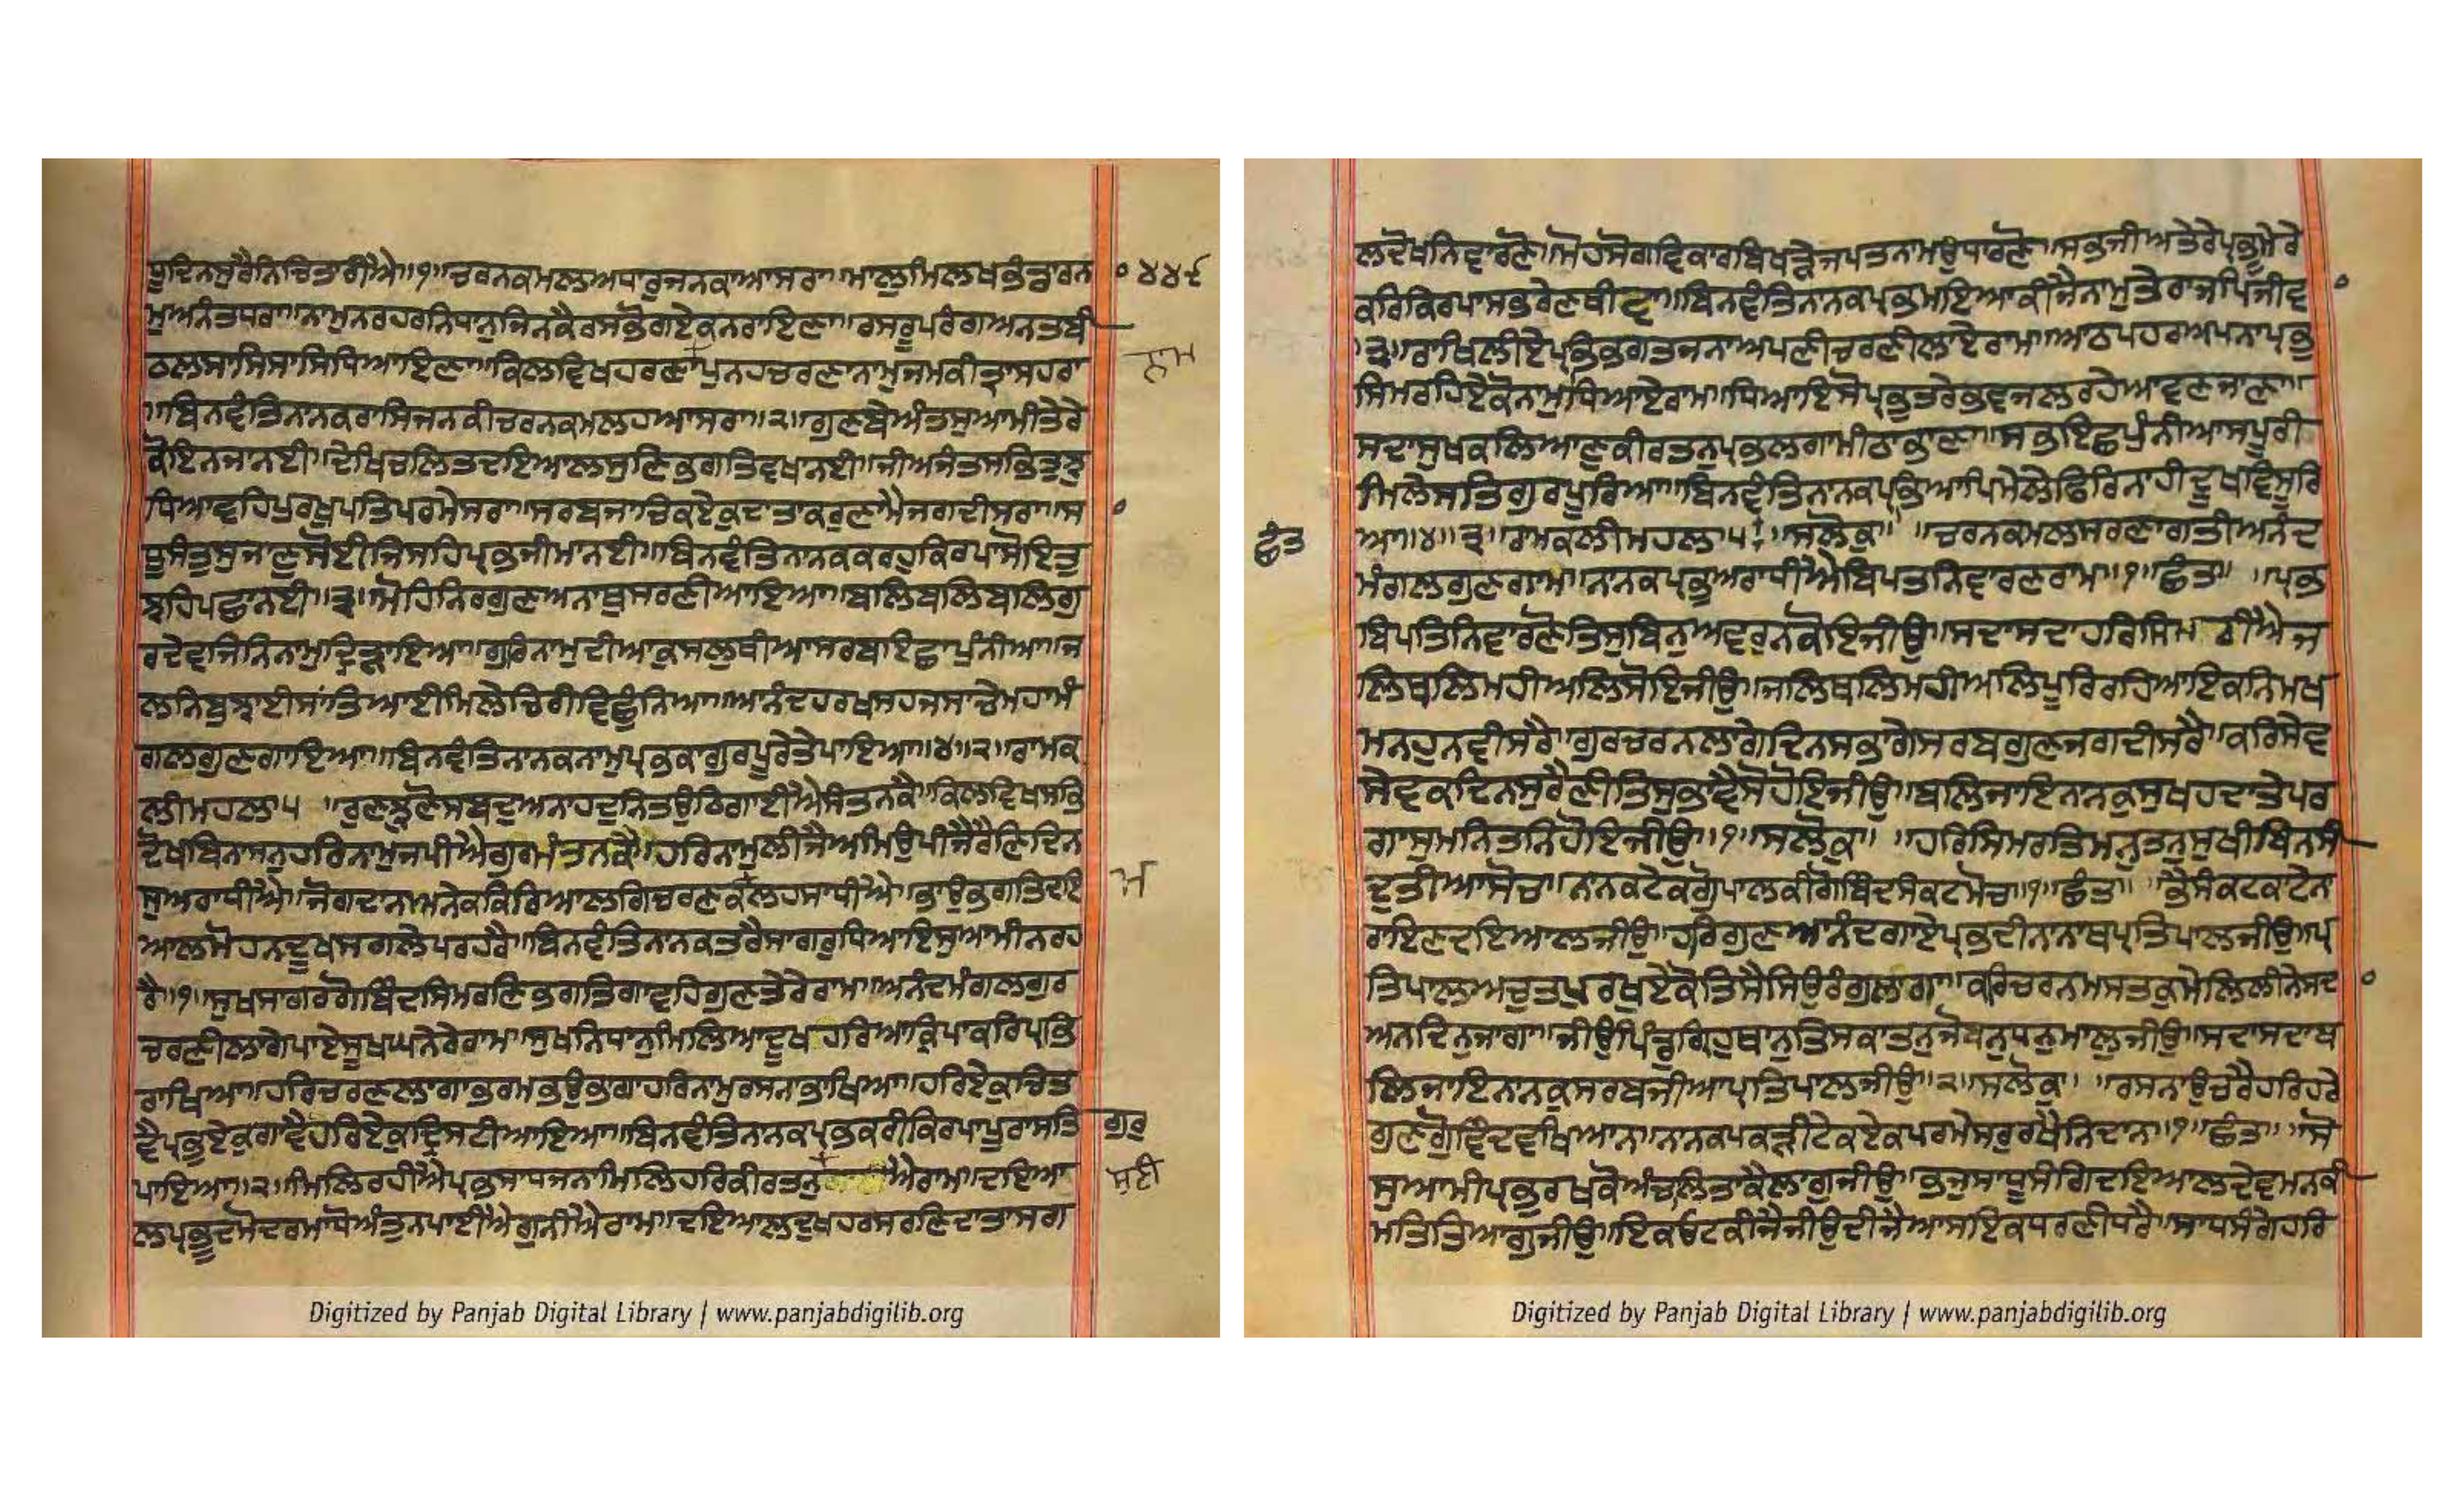 ਪ੍ਰਦਿਨਸੁਰੈਨਿਚਿਤਾਰੀਐ॥੧॥ਚਰਨਕਮਲਅਧਾਰੁਜਨਕਾਆਸਰਾ॥ਮਾਲੁਮਿਲਖਭੰਡਾਰਨਾ
੦੪੪੬
ਮੁਅਨੰਤਧਰਾ॥ਨਾਮੁਨਰਹਰਨਿਧਾਨੁਜਿਨਕੈਰਸਭੋਗਏਕਨਰਾਇਣਾ॥ਰਸਰੂਪਰੰਗਅਨਤਬੀ
ਠਲਸਾਸਿਸਾਸਿਧਿਆਇਣਾ॥ਕਿਲਵਿਖਹਰਣਾਪੁਨਹਚਰਣਾਨਾਮੁਜਮਕੀਤ੍ਰਾਸਹਰਾ
ਨਾਮ
॥ਬਿਨਵੰਤਿਨਾਨਕਰਾਸਿਜਨਕੀਚਰਨਕਮਲਹਆਸਰਾ॥੨॥ਗੁਣਬੇਅੰਤਸੁਆਮੀਤੇਰੇ
ਕੋਇਨਜਾਨਈ॥ਦੇਖਿਚਲਿਤਦਇਆਲਸੁਣਿਭਗਤਿਵਖਾਨਈ॥ਜੀਅਜੰਤਸਭਿਤੁਝੁ
ਧਿਆਵਹਿਪੁਰਖੁਪਤਿਪਰਮੇਸਰਾ॥ਸਰਬਜਾਚਿਕਏਕੁਦਾਤਾਕਰੁਣਾਮੈਜਗਦੀਸਰਾ॥ਸਾ
ਧੂਸੰਤੁਸੁਜਾਣੁਸੋਈਜਿਸਹਿਪ੍ਰਭਜੀਮਾਨਈ॥ਬਿਨਵੰਤਿਨਾਨਕਕਰਹੁਕਿਰਪਾਸੋਇਤੁ
ਝਹਿਪਛਾਨਈ॥੩॥ਮੋਹਿਨਿਰਗੁਣਅਨਾਥੁਸਰਣੀਆਇਆ॥ਬਲਿਬਲਿਬਲਿਗੁ
ਰਦੇਵਜਿਨਿਨਾਮੁਦ੍ਰਿੜਾਇਆ॥ਗੁਰਿਨਾਮੁਦੀਆਕੁਸਲੁਥੀਆਸਰਬਇਛਾਪੁੰਨੀਆ॥ਜ
ਲਨਿਬੁਝਾਈਸਾਂਤਿਆਈਮਿਲੇਚਿਰੀਵਿਛੁੰਨਿਆ॥ਆਨੰਦਹਰਖਸਹਜਸਾਚੇਮਹਾਮੰ
ਗਲਗੁਣਗਾਇਆ॥ਬਿਨਵੰਤਿਨਾਨਕਨਾਮੁਪ੍ਰਭਕਾਗੁਰਪੂਰੇਤੇਪਾਇਆ॥੪॥੨॥ਰਾਮਕ
ਲੀਮਹਲਾ੫ ॥ਰੁਣਝੁਣੋਸਬਦੁਅਨਾਹਦੁਨਿਤਉਠਿਗਾਈਐਸੰਤਨਕੈ॥ਕਿਲਵਿਖਸਭਿ
ਦੋਖਬਿਨਾਸਨੁਹਰਿਨਾਮੁਜਪੀਐਗੁਰਮੰਤਨਕੈ॥ਹਰਿਨਾਮੁਲੀਜੈਅਮਿਉਪੀਜੈਰੈਣਿਦਿਨ
ਸੁਅਰਾਧੀਐ॥ਜੋਗਦਾਨਅਨੇਕਕਿਰਿਆਲਗਿਚਰਣਕਲਹਸਾਧੀਐ॥ਭਾਉਭਗਤਿਦਇ
ਮ
ਆਲਮੋਹਨਦੂਖਸਗਲੇਪਰਹਰੈ॥ਬਿਨਵੰਤਿਨਾਨਕਤਰੈਸਾਗਰੁਧਿਆਇਸੁਆਮੀਨਰਹ
ਰੈ॥੧॥ਸੁਖਸਾਗਰਗੋਬਿੰਦਸਿਮਰਣਿਭਗਤਿਗਾਵਹਿਗੁਣਤੇਰੇਰਾਮ॥ਅਨੰਦਮੰਗਲਗੁਰ
ਚਰਣੀਲਾਗੇਪਾਏਸੂਖਘਨੇਰੇਰਾਮ॥ਸੁਖਨਿਧਾਨੁਮਿਲਿਆਦੂਖਹਰਿਆਕ੍ਰਿਪਾਕਰਿਪ੍ਰਭਿ
ਰਾਖਿਆ॥ਹਰਿਚਰਣਲਾਗਾਭਰਮਭਉਭਾਗਾਹਰਿਨਾਮੁਰਸਨਾਭਾਖਿਆ॥ਹਰਿਏਕੁਚਿਤ
ਵੈਪ੍ਰਭੁਏਕੁਗਾਵੈਹਰਿਏਕੁਦ੍ਰਿਸਟੀਆਇਆ॥ਬਿਨਵੰਤਿਨਾਨਕਪ੍ਰਭਕਰੀਕਿਰਪਾਪੂਰਾਸਤਿ
ਗੁਰੁ
ਪਾਇਆ॥੨॥ਮਿਲਿਰਹੀਐਪ੍ਰਭਸਾਧਜਨਾਮਿਲਿਹਰਿਕੀਰਤਨੁ ਐਰਾਮ॥ਦਇਆ
ਸੁਣੀ
ਲਪ੍ਰਭੂਦਮੋਦਰਮਾਧੋਅੰਤੁਨਪਾਈਐਗੁਨੀਐਰਾਮ॥ਦਇਆਲਦੁਖਹਰਸਰਣਿਦਾਤਾਸਗ
ਲਦੋਖਨਿਵਾਰਣੋ॥ਮੋਹਸੋਗਵਿਕਾਰਬਿਖੜੇਜਪਤਨਾਮਉਧਾਰਣੋ॥ਸਭਜੀਅਤੇਰੇਪ੍ਰਭੂਮੇਰੇ
ਕਰਿਕਿਰਪਾਸਭਰੇਣਥੀਵਾ॥ਬਿਨਵੰਤਿਨਾਨਕਪ੍ਰਭਮਇਆਕੀਜੈਨਾਮੁਤੇਰਾਜਪਿਜੀਵਾ
॥੩॥ਰਾਖਿਲੀਏਪ੍ਰਭਿਭਗਤਜਨਾਅਪਣੀਚਰਣੀਲਾਏਰਾਮ॥ਆਠਪਹਰਅਪਨਾਪ੍ਰਭੁ
ਸਿਮਰਹਿਏਕੋਨਾਮੁਧਿਆਏਰਾਮ॥ਧਿਆਇਸੋਪ੍ਰਭੁਤਰੇਭਵਜਲਰਹੇਆਵਣਜਾਣਾ॥
ਸਦਾਸੁਖਕਲਿਆਣੁਕੀਰਤਨੁਪ੍ਰਭਲਗਾਮੀਠਾਭਾਣਾ॥ਸਭਇਛਪੁੰਨੀਆਸਪੂਰੀ
ਮਿਲੇਸਤਿਗੁਰਪੂਰਿਆ॥ਬਿਨਵੰਤਿਨਾਨਕਪ੍ਰਭਿਆਪਿਮੇਲੇਫਿਰਿਨਾਹੀਦੂਖਵਿਸੂਰਿ
ਆ॥੪॥੩॥ਰਾਮਕਲੀਮਹਲਾ੫॥ਸਲੋਕੁ॥ ॥ਚਰਨਕਮਲਸਰਣਾਗਤੀਅਨੰਦ
ਛੰਤ
ਮੰਗਲਗੁਣਗਾਮ॥ਨਾਨਕਪ੍ਰਭੁਅਰਾਧੀਐਬਿਪਤਨਿਵਾਰਣਰਾਮ॥੧॥ਛੰਤ॥ ॥ਪ੍ਰਭ
ਬਿਪਤਿਨਿਵਾਰਣੋਤਿਸੁਬਿਨੁਅਵਰੁਨਕੋਇਜੀਉ॥ਸਦਾਸਦਾਹਰਿਸਿਮਰੀਐਜ
ਲਿਥਲਿਮਹੀਅਲਿਸੋਇਜੀਉ॥ਜਲਿਥਲਿਮਹੀਅਲਿਪੂਰਿਰਹਿਆਇਕਨਿਮਖ
ਮਨਹੁਨਵੀਸਰੈ॥ਗੁਰਚਰਨਲਾਗੇਦਿਨਸਭਾਗੇਸਰਬਗੁਣਜਗਦੀਸਰੈ॥ਕਰਿਸੇਵ
ਸੇਵਕਦਿਨਸੁਰੈਣੀਤਿਸੁਭਾਵੈਸੋਹੋਇਜੀਉ॥ਬਲਿਜਾਇਨਾਨਕੁਸੁਖਹਦਾਤੇਪਰ
ਗਾਸੁਮਨਿਤਨਿਹੋਇਜੀਉ॥੧॥ਸਲੋਕੁ॥ ॥ਹਰਿਸਿਮਰਤਿਮਨੁਤਨੁਸੁਖੀਬਿਨਸੀ
ਦੁਤੀਆਸੋਚ॥ਨਾਨਕਟੇਕਗੋੁਪਾਲਕੀਗੋਬਿੰਦਸੰਕਟਮੋਚ॥੧॥ਛੰਤ॥ ॥ਭੈਸੰਕਟਕਾਟੇਨਾ
ਰਾਇਣਦਇਆਲਜੀਉ॥ਹਰਿਗੁਣਆਨੰਦਗਾਏਪ੍ਰਭਦੀਨਾਨਾਥਪ੍ਰਤਿਪਾਲਜੀਉ॥ਪ੍ਰ
ਤਿਪਾਲਅਚੁਤਪੁਰਖੁਏਕੋਤਿਸੈਸਿਉਰੰਗੁਲਾਗਾ॥ਕਰਿਚਰਨਮਸਤਕੁਮੇਲਿਲੀਨੇਸਦਾ
ਅਨਦਿਨੁਜਾਗਾ॥ਜੀਉਪਿੰਡੁਗ੍ਰਿਹੁਥਾਨੁਤਿਸਕਾਤਨੁਜੋਬਨੁਧਨੁਮਾਲੁਜੀਉ॥ਸਦਾਸਦਾਬ
ਲਿਜਾਇਨਾਨਕੁਸਰਬਜੀਆਪ੍ਰਤਿਪਾਲਜੀਉ॥੨॥ਸਲੋਕੁ॥ ॥ਰਸਨਾਉਚਰੈਹਰਿਹਰੇ
ਗੁਣਗੋੁਵਿੰਦਵਖਿਆਨ॥ਨਾਨਕਪਕੜੀਟੇਕਏਕਪਰਮੇਸਰੁਰਖੈਨਿਦਾਨ॥੧॥ਛੰਤ॥ ॥ਸੋ
ਸੁਆਮੀਪ੍ਰਭੁਰਖਕੋਅੰਚਲਿਤਾਕੈਲਾਗੁਜੀਉ॥ਭਜੁਸਾਧੂਸੰਗਿਦਇਆਲਦੇਵਮਨਕੀ
ਮਤਿਤਿਆਗੁਜੀਉ॥ਇਕਓਟਕੀਜੈਜੀਉਦੀਜੈਆਸਇਕਧਰਣੀਧਰੈ॥ਸਾਧਸੰਗੇਹਰਿ
Digitized by Panjab Digital Library | www.panjabdigilib.org
Digitized by Panjab Digital Library | www.panjabdigilib.org